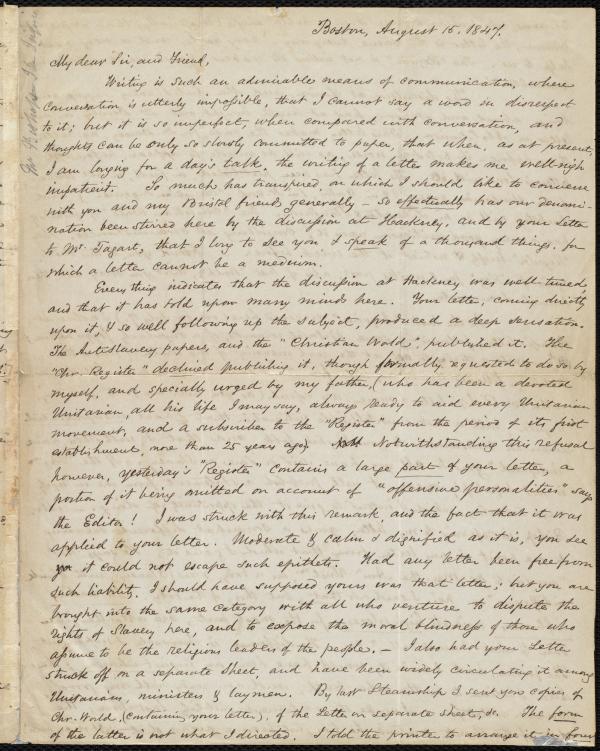 Boston, August 15. 1847.
My dear Sir, and Friend,
Writing is such an admirable means of communication, where
conversation is utterly impossible, that I cannot say a word in disrespect
to it; but it is so imperfect, when compared with conversation, and
thoughts can be only so slowly committed to paper, that when, as at present,
I am longing for a day's talk, the writing of a letter makes me well-nigh
impatient. So much has transpired, on which I should like to converse
with you and my Bristol friends generally – so effectually has our denomi-
nation been stirred here by the discussion at Hackney, and by your Letter
to Mr. Tagart, that I long to see you & speak of a thousand things, for
which a letter cannot be a medium.
Every thing indicates that the discussion at Hackney was well-timed,
and that it has told upon many minds here. Your letter, coming directly
upon it, & so well following up the subject, produced a deep sensation.
The Antislavery papers, and the "Christian World", published it. The
"Chr. Register" declined publishing it, though formally requested to do so by
myself, and specially urged by my father, (who has been a devoted
Unitarian, all his life I may say, always ready to aid every Unitarian
movement, and a subscriber to the "Register" from the period of its first
establishment, more than 25 years ago). Notwithstanding this refusal
however, yesterday's "Register" contains a large part of your letter, a
portion of it being omitted on account of "offensive personalities" says
the Editor! I was struck with this remark, and the fact that it was
applied to your letter. Moderate & calm & dignified as it is, you see
it could not escape such epithets. Had any letter been free from
such liability, I should have supposed yours was that letter; but you are
brought into the same category with all who venture to dispute the
rights of Slavery here, and to expose the moral blindness of those who
assume to be the religious leaders of the people. – I also had your Letter
struck off on a separate sheet, and have been widely circulating it among
Unitarians, ministers & laymen. By last Steamship I sent you copies of
Chr. World, (containing your letter), of the Letter on separate sheet, &c. The form
of the latter is not what I directed. I told the printer to arrange it in four